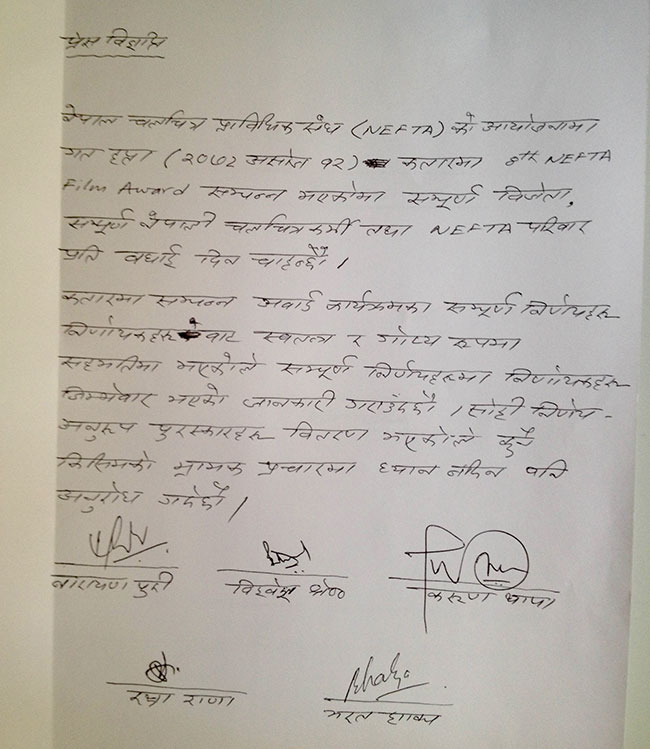 प्रेस विज्ञप्ति
नेपाल चलचित्र प्राविधिक संघ (NEFTA) को आयोजनामा
गत हप्ता (२०७२ असोज १२) कतारमा 6th NEFTA
Film Award सम्पन्न भएकोमा सम्पूर्ण विजेता,
सम्पूर्ण नेपाली चलचित्रकर्मी तथा NEFTA परिवार
प्रति बधाई दिन चाहन्छौं ।
कतारमा सम्पन्न अवार्ड कार्यक्रमका सम्पूर्ण निर्णयहरू
निर्णायकहरू बाट स्वतन्त्र र गोप्य रूपमा
सहमतिमा भएकोले सम्पूर्ण निर्णयहरूमा निर्णायकहरू
जिम्मेवार भएको जानकारी गराउँदछौं । सोही निर्णय
अनुरूप पुरस्कारहरू वितरण भएकोले कुनै
किसिमको भ्रामक प्रचारमा ध्यान नदिन पनि
अनुरोध गर्दछौं ।
नारायण पुरी
करूण थापा
राणा
भरत शाक्य